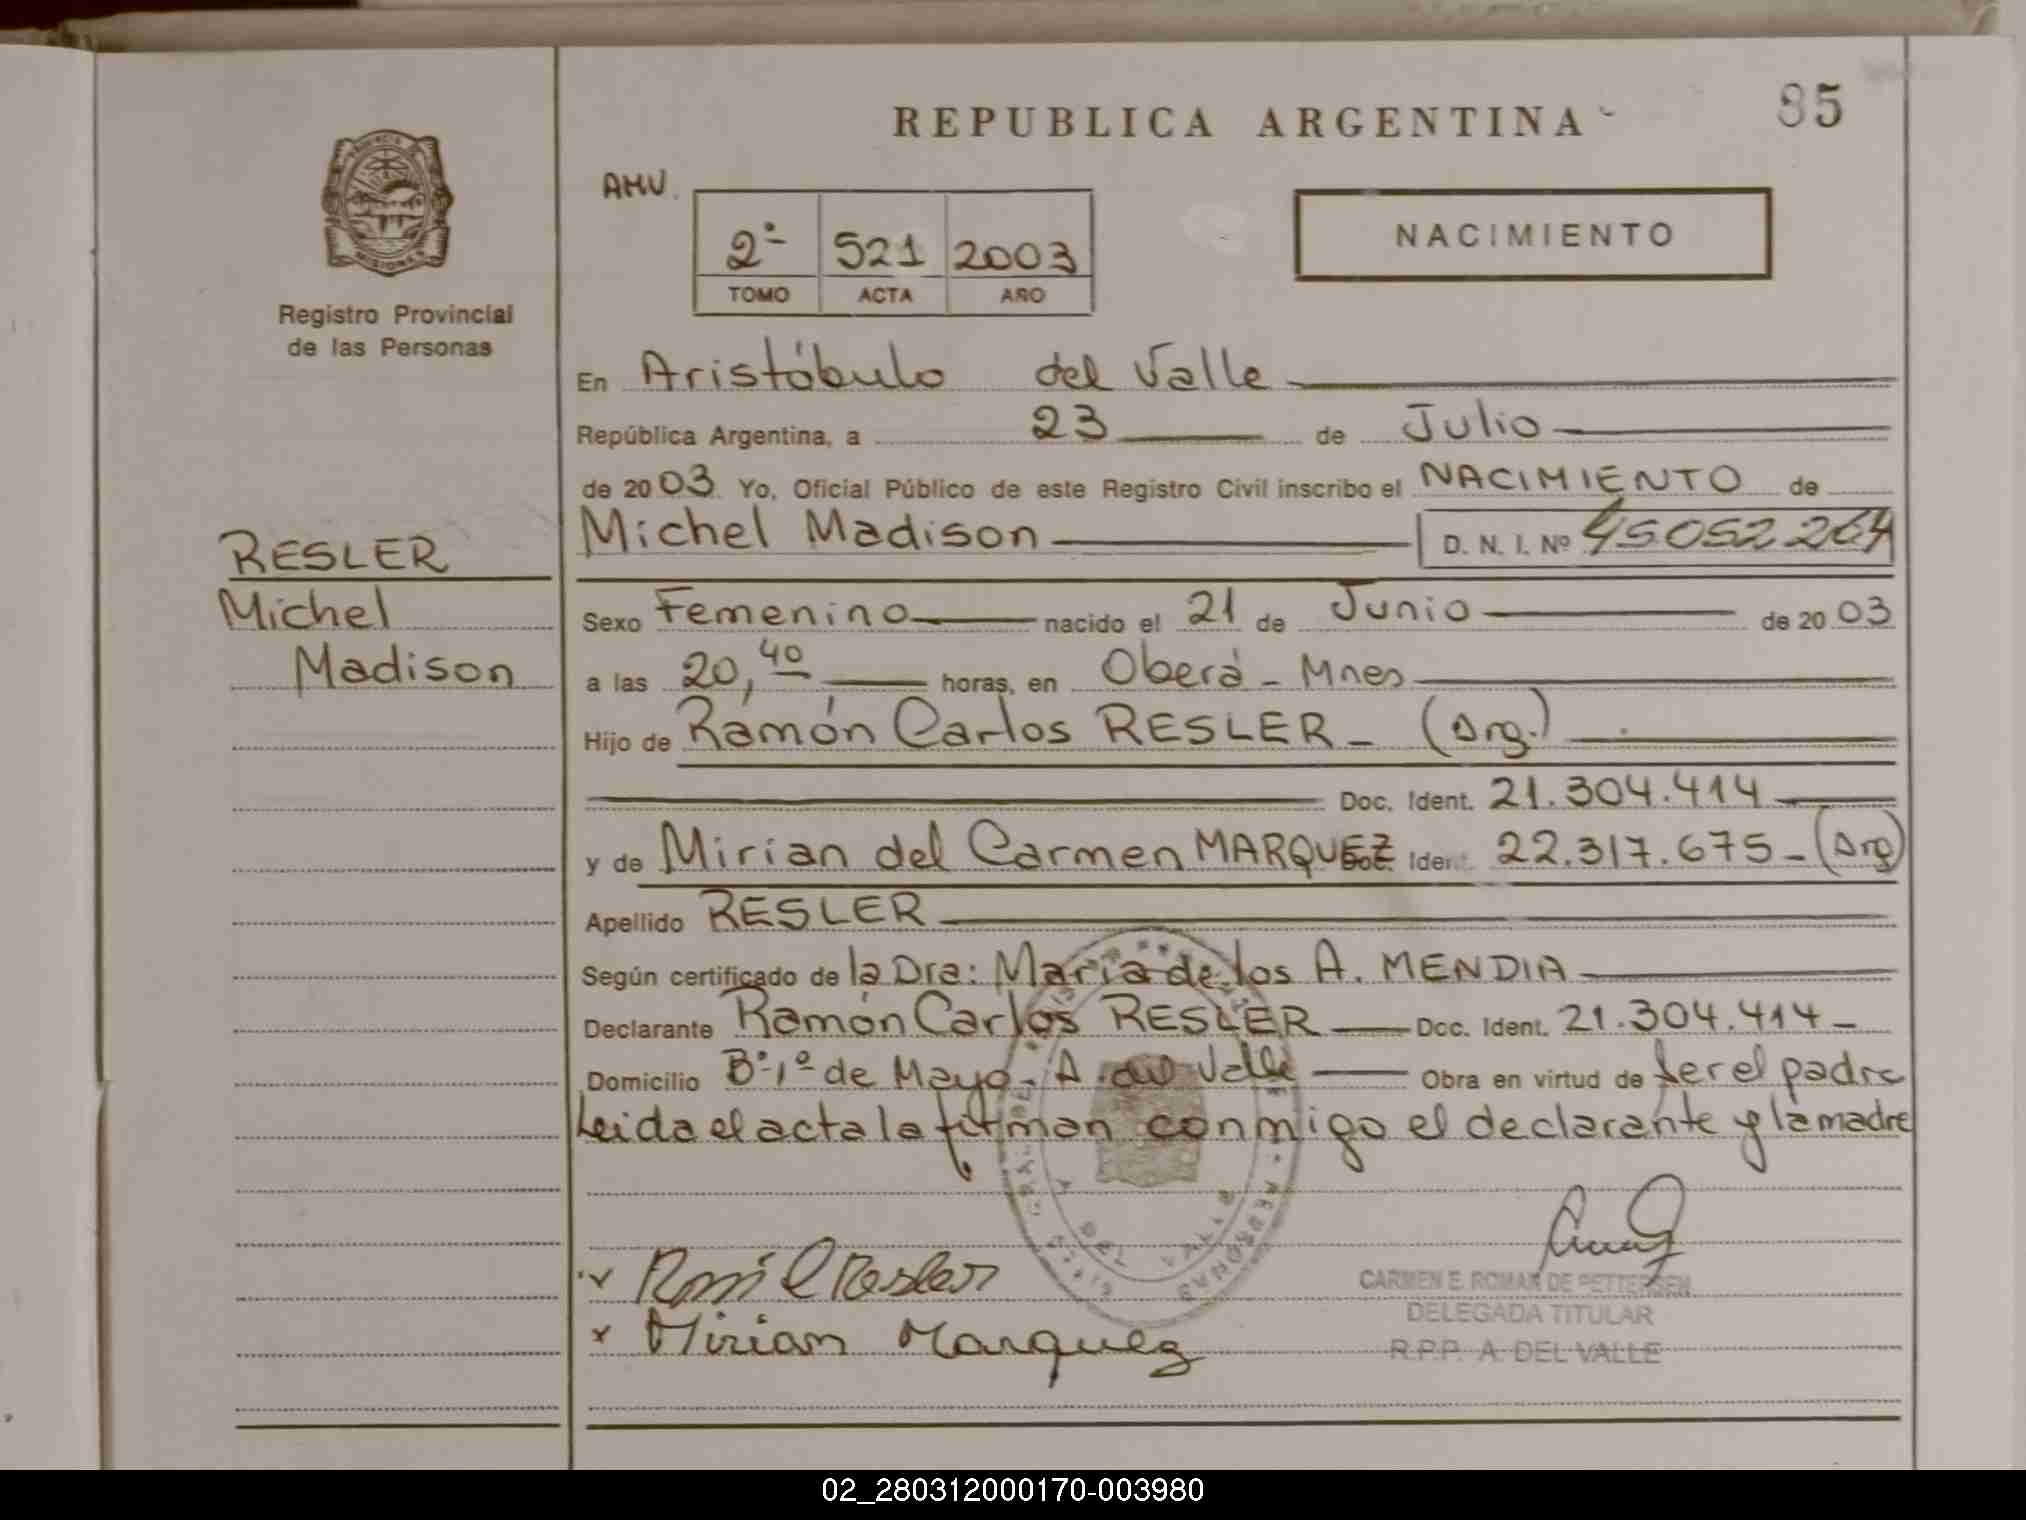 REPUBLICA ARGENTINA
85
AMV.
2º 521 2003
TOMO ACTA AÑO
NACIMIENTO
Registro Provincial
de las Personas
En Aristóbulo del Valle
República Argentina, a 23 de Julio
de 2003 Yo, Oficial Público de este Registro Civil inscribo el NACIMIENTO de
Michel Madison D. N. I. Nº 45052264
RESLER
Michel
Madison
Sexo Femenino nacido el 21 de Junio de 2003
a las 20,40 horas, en Oberá - Mnes
Hijo de Ramón Carlos RESLER - (Arg.)
Doc. Ident. 21.304.414
y de Mirian del Carmen MARQUEZ Doc. Ident. 22.317.675 - (Arg)
Apellido RESLER
Según certificado de la Dra: María de los A. MENDIA
Declarante Ramón Carlos RESLER Doc. Ident. 21.304.414 -
Domicilio Bº 1º de Mayo - A. del Valle Obra en virtud de ser el padre
Leida el acta la firman conmigo el declarante y la madre
x Resler
x Mirian Marquez
CARMEN E. ROMAN DE PETTERSEN
DELEGADA TITULAR
R.P.P. A. DEL VALLE
02_280312000170-003980